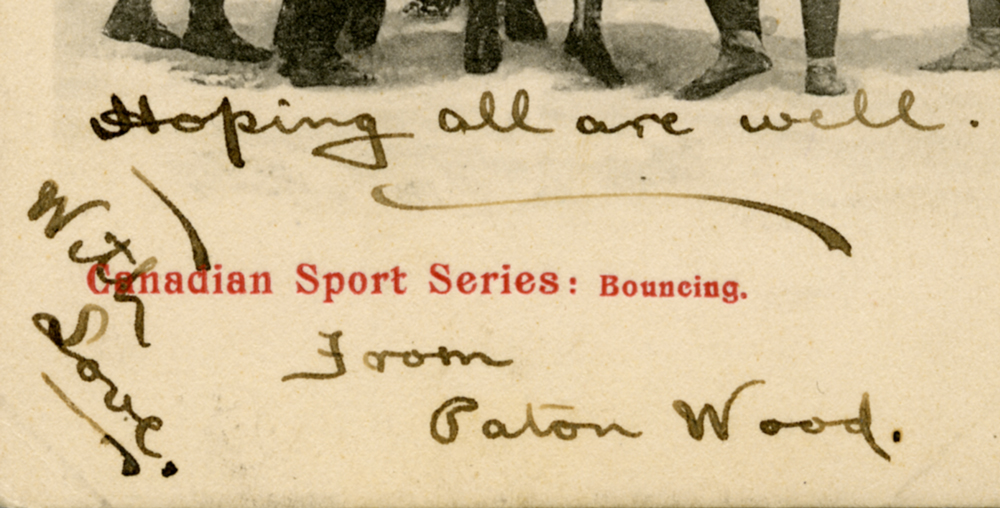 Hoping all are well.
With
Love.
Canadian Sport Series: Bouncing.
From
Paton Wood.